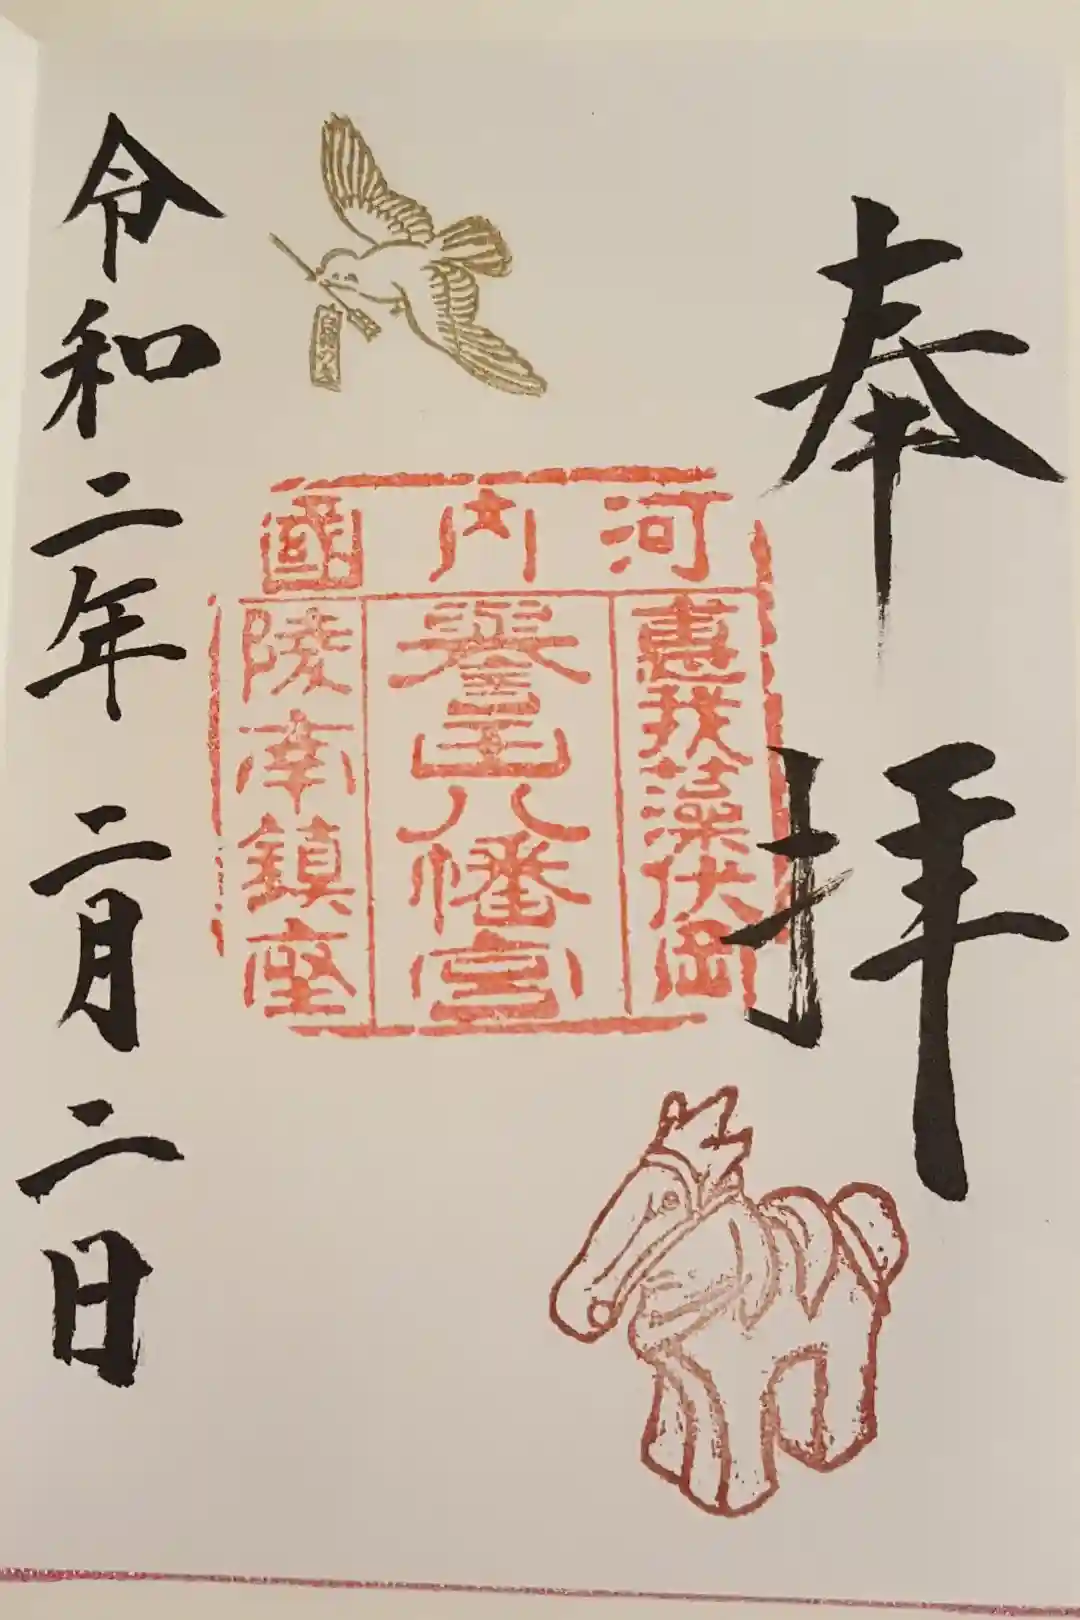 奉拝
河内國
惠我藻伏岡
誉田八幡宮
陵南鎮座
令和二年二月二日